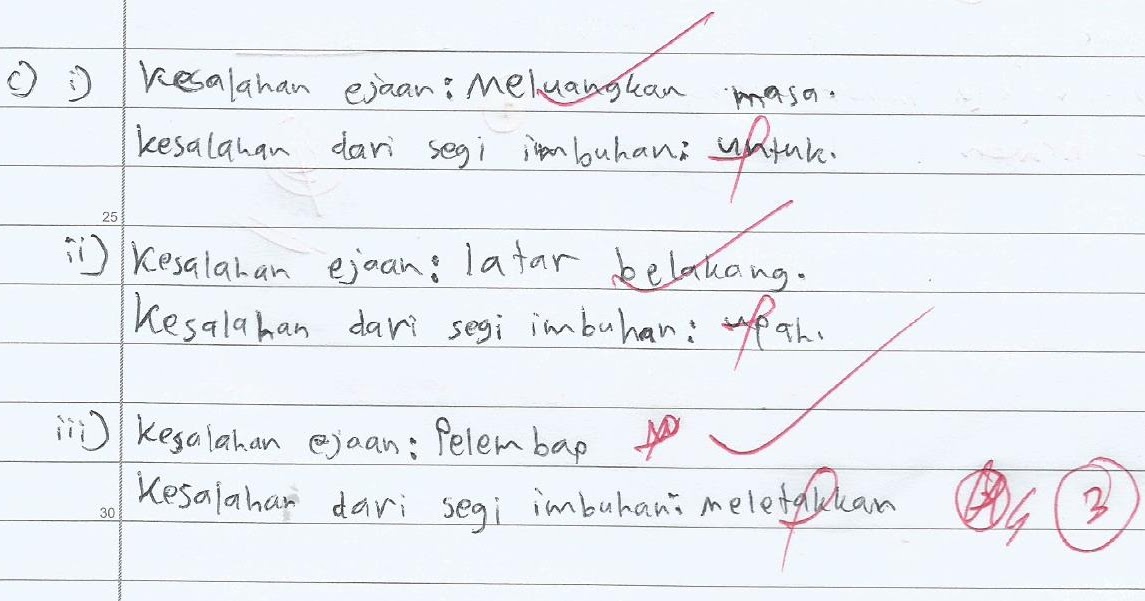 c) i) Kesalahan ejaan: Meluangkan masa.
kesalahan dari segi imbuhan: untuk.
25
ii) Kesalahan ejaan: latar belakang.
Kesalahan dari segi imbuhan: upah.
iii) kesalahan ejaan: Pelembap
30 Kesalahan dari segi imbuhan: meletakkan 3